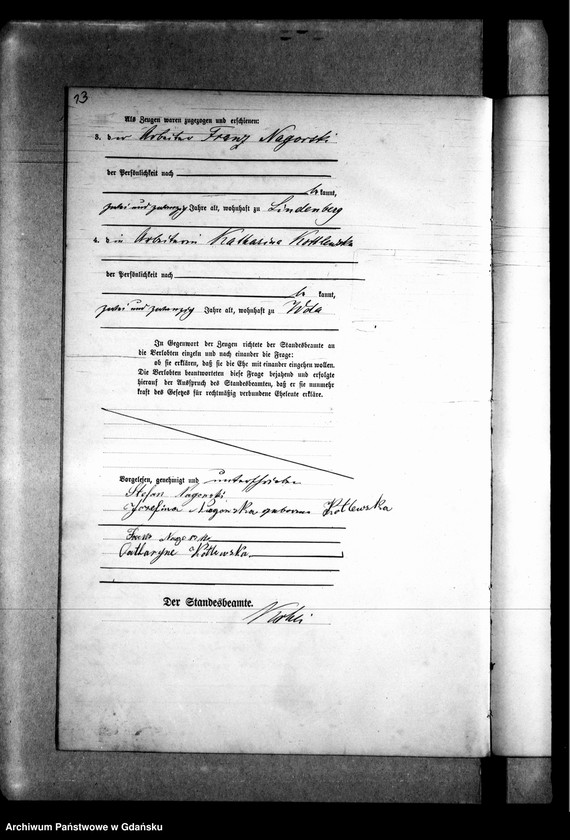 13
Als Zeugen waren zugezogen und erschienen:
3. der Arbeiter Franz Nagorski
der Persönlichkeit nach
be kannt,
zwei und zwanzig Jahre alt, wohnhaft zu Lindenberg
4. die Arbeiterin Katharina Kottlewska
der Persönlichkeit nach
be kannt,
zwei und zwanzig Jahre alt, wohnhaft zu Wda
In Gegenwart der Zeugen richtete der Standesbeamte an
die Verlobten einzeln und nach einander die Frage:
ob sie erklären, daß sie die Ehe mit einander eingehen wollen.
Die Verlobten beantworteten diese Frage bejahend und erfolgte
hierauf der Ausspruch des Standesbeamten, daß er sie nunmehr
kraft des Gesetzes für rechtmäßig verbundene Eheleute erkläre.
Vorgelesen, genehmigt und unterschrieben
Stefan Nagorski
Josefina Nagorska geborene Kotlewska
Franz Nagorski
Katharyne Kotlewska
Der Standesbeamte.
Archiwum Państwowe w Gdańsku